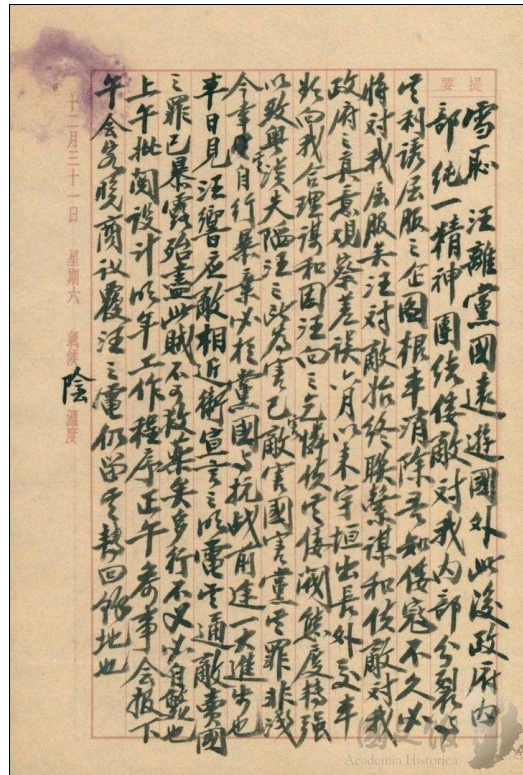 提要
雪恥　汪離黨國遠遊國外此後政府內
部純一精神團結倭敵對我內部分裂與
其利誘屈服之企圖根本消除吾知倭寇不久必
將對我屈服矣汪對敵始終聯繫謀和使敵對我
政府之真意觀察差誤八月以來宇垣出長外交本
欲向我合理謀和因汪向之乞憐使其倭閥態度轉強
以致與宇垣失陷汪之此為害己害敵害國害黨其罪非淺
今幸其自行暴棄必於黨國與抗戰前途一大進步也
本日見汪響應敵相近衛宣言之明電其通敵賣國
之罪已暴露殆盡此賊不可救藥矣多行不义必自斃也
上午批閱設計明年工作程序正午參事會報下
午会客晚商议覆汪之電仍留其轉回餘地也
十二月三十一日 星期六 氣候 陰 溫度
國史館
Academia Historica